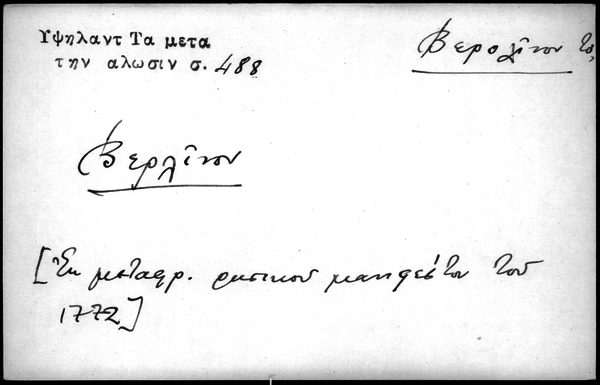 Υψηλαντ Τα μετα
την αλωσιν σ. 488
Βερολῖνον το,
Βερλῖνον
[Ἐκ μεταφρ. ρωσικοῦ μανιφέστου τοῦ
1772]